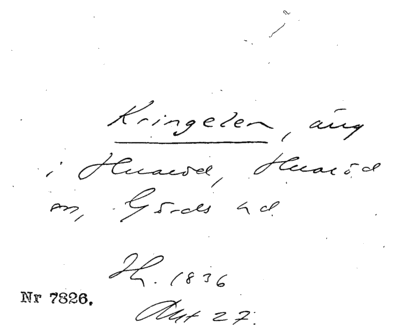 Kringelen, äng
i Huaröd, Huaröd
sn, Gärds hd.
Hh. 1836
Akt 27.
Nr 7826.